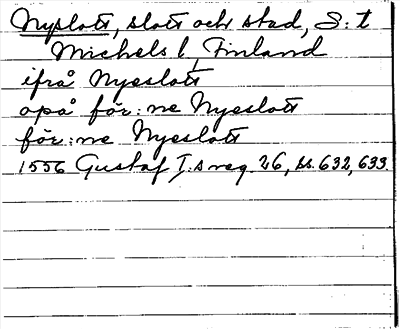 Nyslott, slott och stad, S:t
Michels l, Finland
ifrå Nyeslott
opå för:ne Nyeslott
för:ne Nyeslott
1556 Gustaf I:s reg. 26, ss. 632, 633.